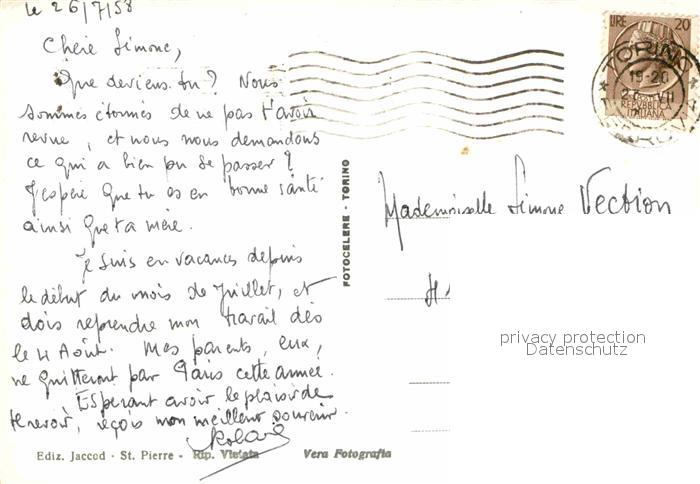 le 26/7/58
Chère Simone,
Que deviens-tu ? Nous
sommes étonnés de ne pas t'avoir
revue, et nous nous demandons
ce qui a bien pu se passer ?
J'espère que tu es en bonne santé
ainsi que ta mère.
Je suis en vacances depuis
le début du mois de Juillet, et
dois reprendre mon travail dès
le 4 Août. Mes parents, eux,
ne quitteront pas Paris cette année.
Espérant avoir le plaisir de
te revoir, reçois mon meilleur souvenir.
Ediz. Jaccod - St. Pierre - Rip. Vietata
Vera Fotografia
FOTOCELERE - TORINO
LIRE 20
TORINO
19-20
26 VII
REPUBBLICA
ITALIANA
Mademoiselle Simone Vection
privacy protection
Datenschutz